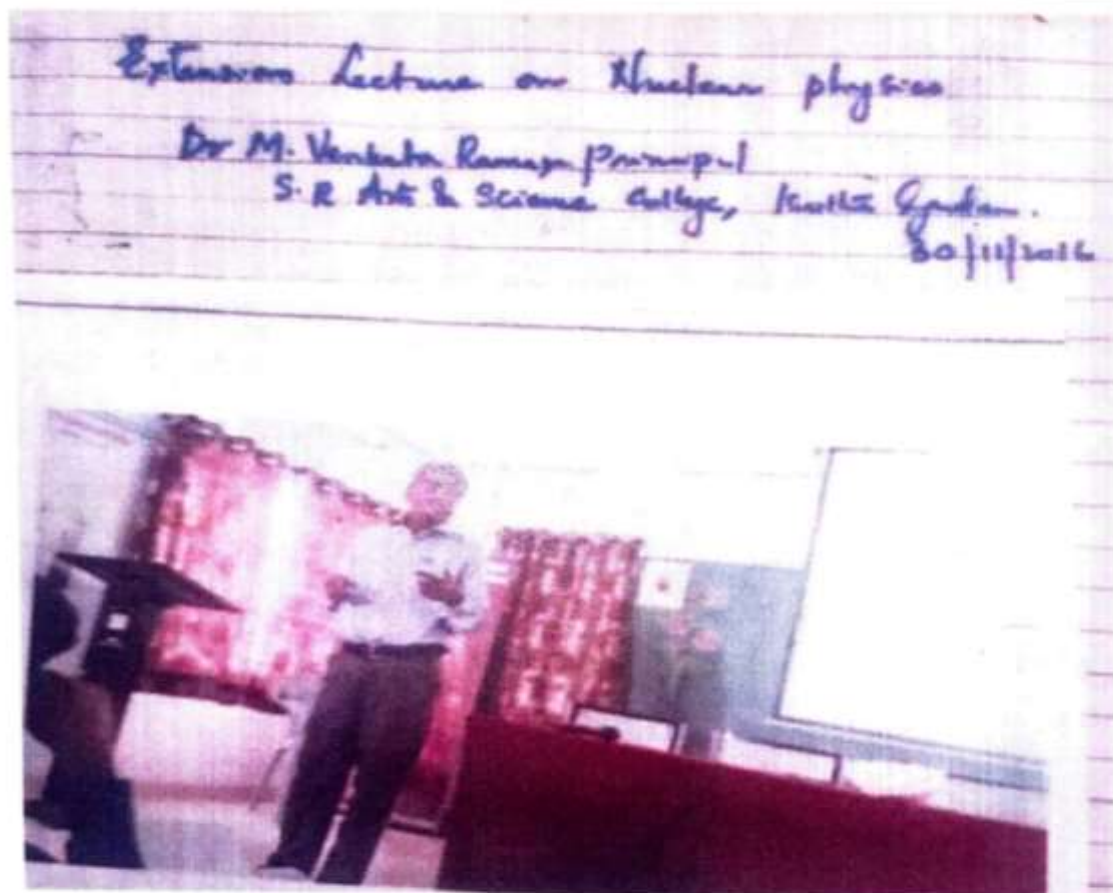 Extension Lecture on Nuclear physics
Dr M. Venkata Ramaya principal
S. R Arts & Science College,
30/11/2016